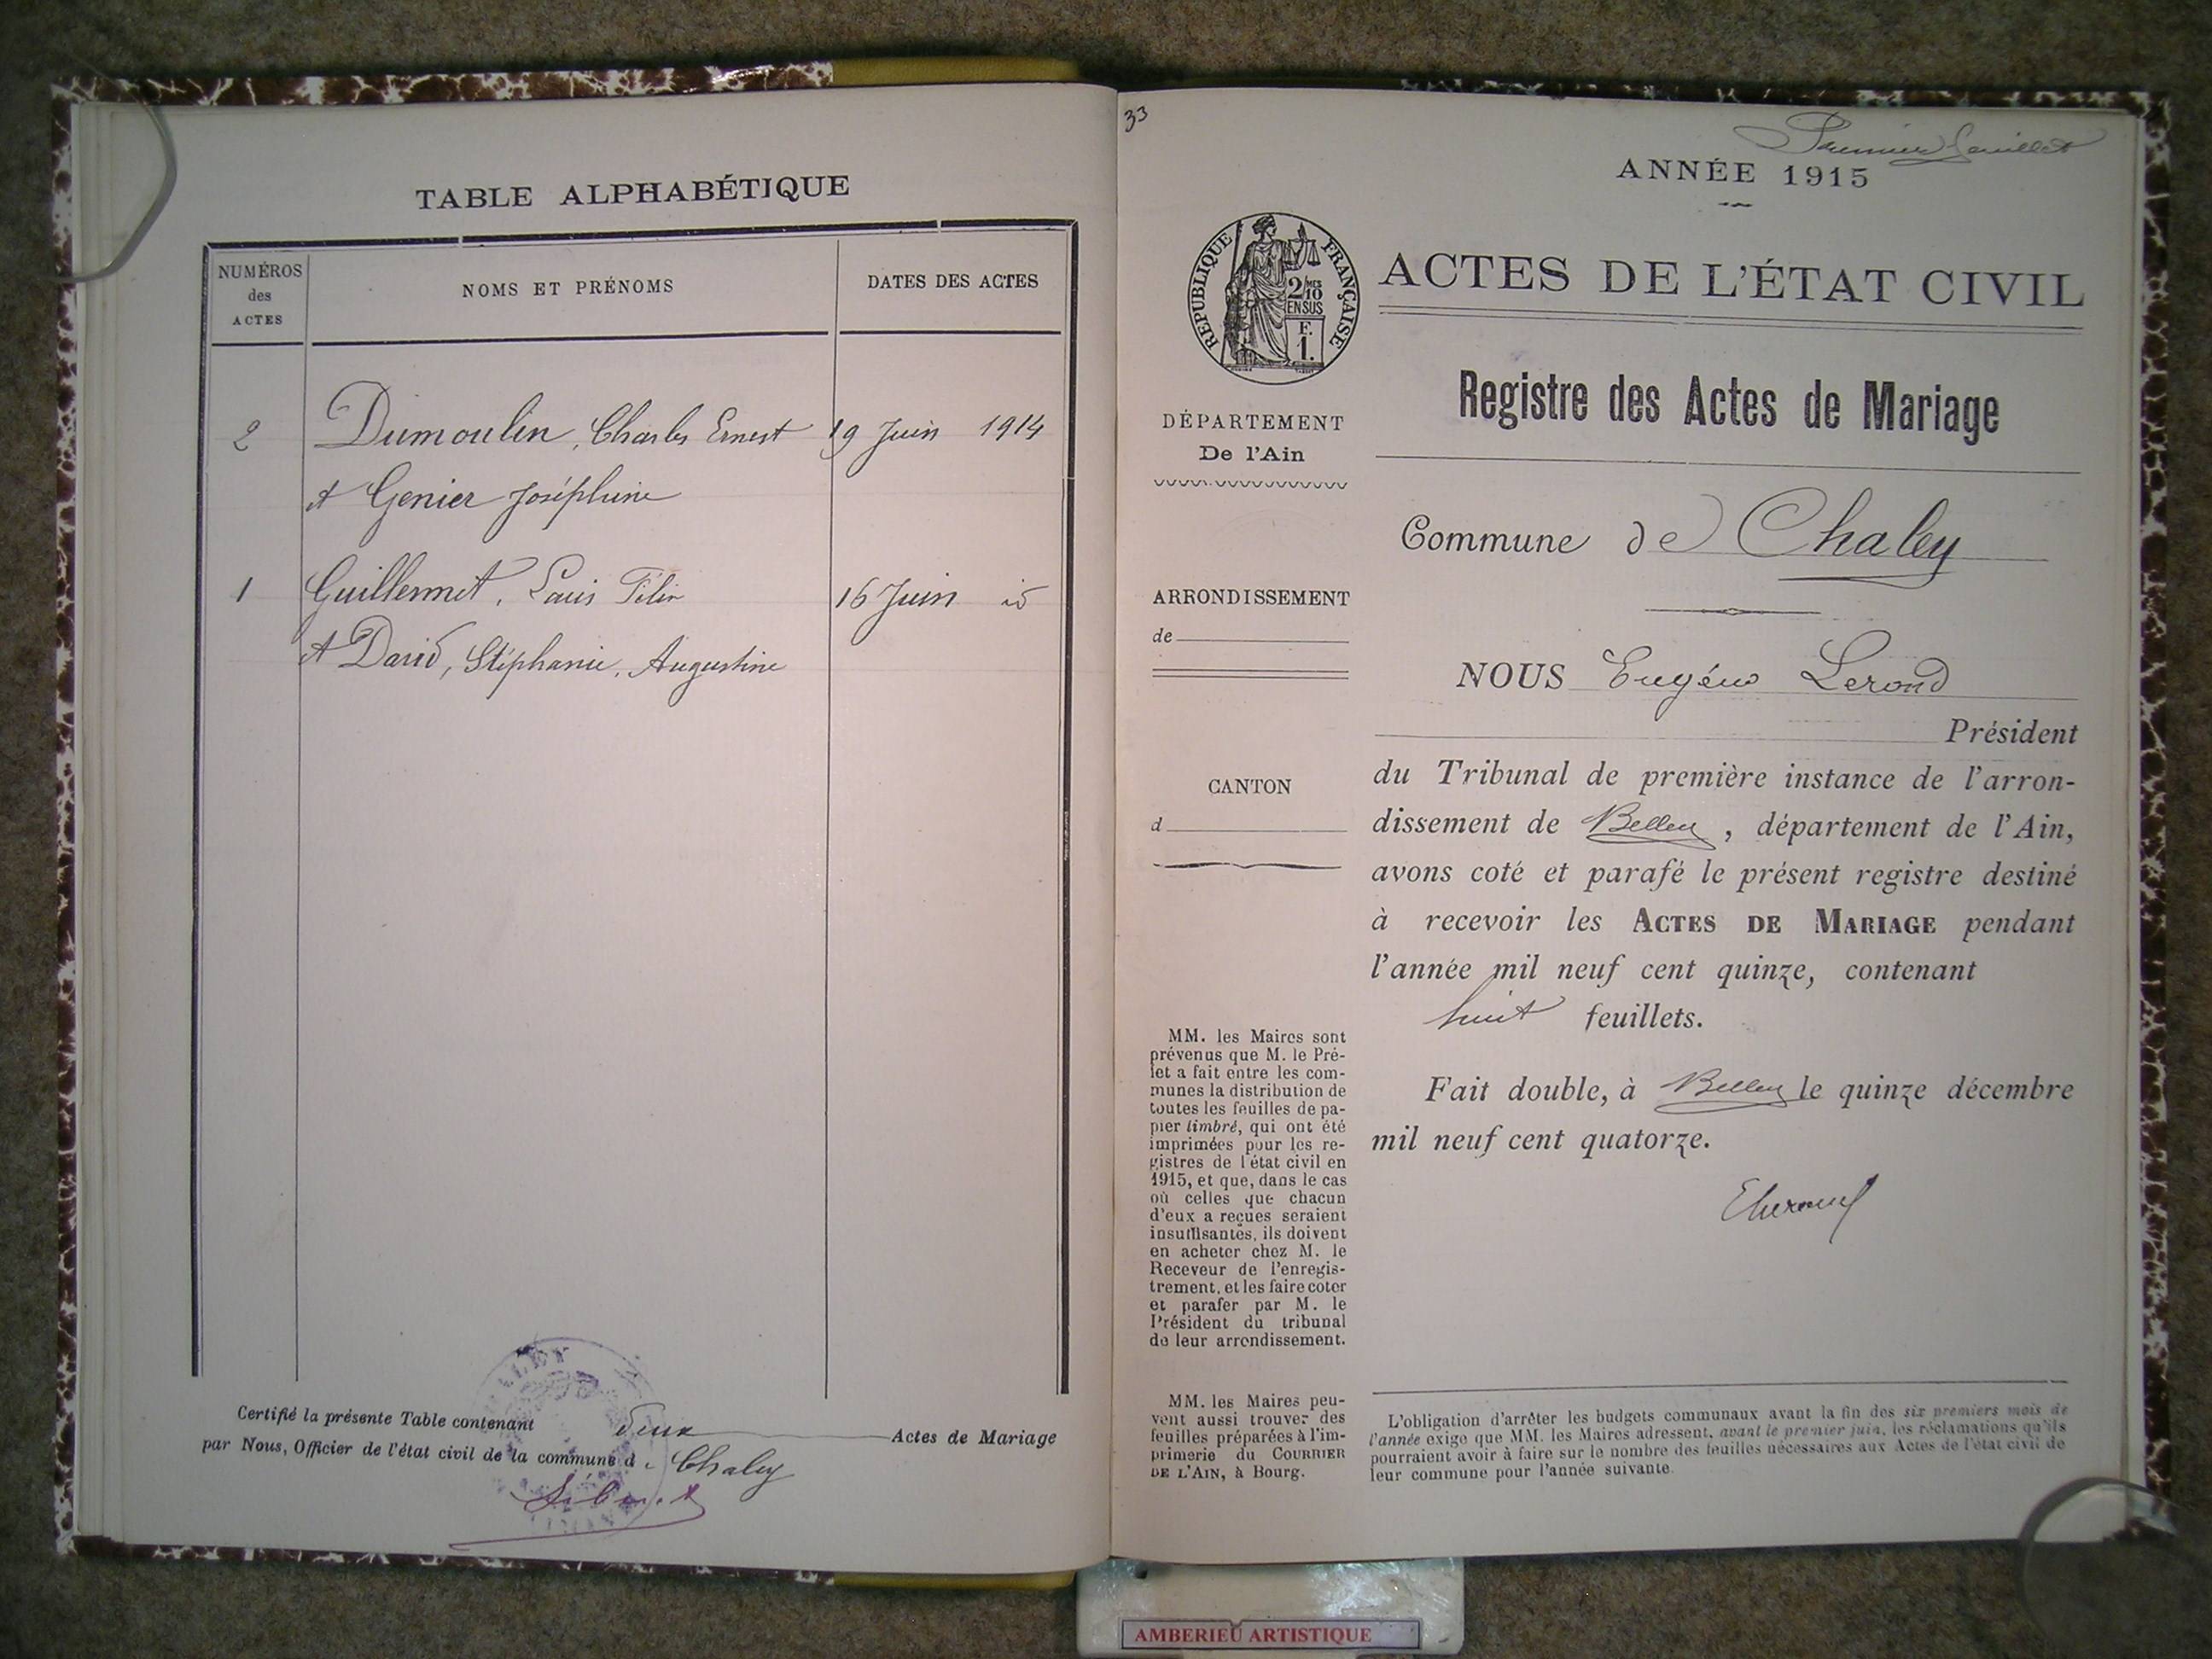 TABLE ALPHABÉTIQUE
NUMÉROS
des
ACTES
NOMS ET PRÉNOMS
DATES DES ACTES
2 Dumoulin, Charles Ernest 19 Juin 1914
et Genier Joséphine
1 Guillermet, Louis Félix 16 Juin id
et David, Stéphanie, Augustine
Certifié la présente Table contenant deux Actes de Mariage
par Nous, Officier de l'état civil de la commune d. Chaley
33
Premier feuillet
ANNÉE 1915
RÉPUBLIQUE FRANÇAISE
2/MES
10
EN SUS
F.
1.
DÉPARTEMENT
De l'Ain
ARRONDISSEMENT
de
CANTON
d
MM. les Maires sont
prévenus que M. le Pré-
fet a fait entre les com-
munes la distribution de
toutes les feuilles de pa-
pier timbré, qui ont été
imprimées pour les re-
gistres de l'état civil en
1915, et que, dans le cas
où celles que chacun
d'eux a reçues seraient
insuffisantes, ils doivent
en acheter chez M. le
Receveur de l'enregis-
trement, et les faire coter
et parafer par M. le
Président du tribunal
de leur arrondissement.
MM. les Maires peu-
vent aussi trouver des
feuilles préparées à l'im-
primerie du COURRIER
DE L'AIN, à Bourg.
ACTES DE L'ÉTAT CIVIL
Registre des Actes de Mariage
Commune de Chaley
NOUS Eugène Lerond
Président
du Tribunal de première instance de l'arron-
dissement de Belley, département de l'Ain,
avons coté et parafé le présent registre destiné
à recevoir les ACTES DE MARIAGE pendant
l'année mil neuf cent quinze, contenant
huit feuillets.
Fait double, à Belley le quinze décembre
mil neuf cent quatorze.
L'obligation d'arrêter les budgets communaux avant la fin des six premiers mois de
l'année exige que MM. les Maires adressent, avant le premier juin, les réclamations qu'ils
pourraient avoir à faire sur le nombre des feuilles nécessaires aux Actes de l'état civil de
leur commune pour l'année suivante.
AMBERIEU ARTISTIQUE